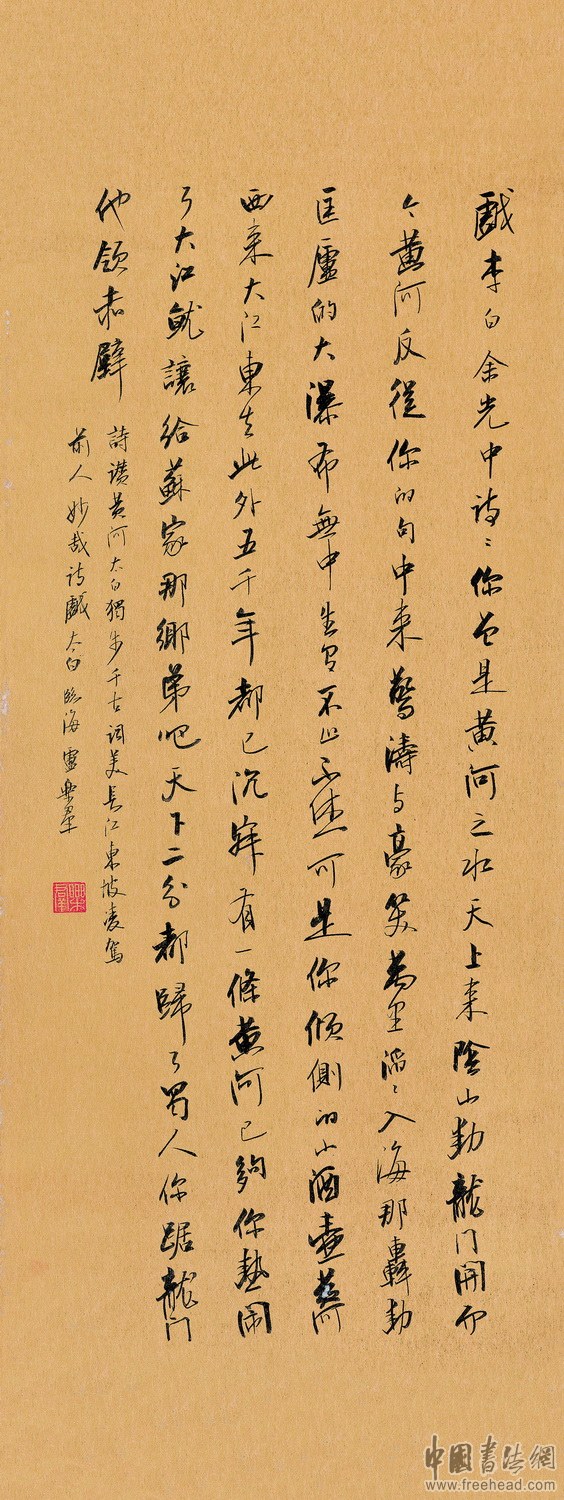 戲李白余光中詩〻你曾是黄河之水天上來陰山動龍門開而
今黄河反從你的句中來驚濤与豪笑萬里滔〻入海那轟動
匡廬的大瀑布無中生有不止不休可是你傾側的小酒壺黄河
西來大江東去此外五千年都已沉寂有一條黄河已夠你熱鬧
了大江就讓給蘇家那鄉弟吧天下二分都歸了蜀人你踞龍門
他領赤壁
詩讚黄河太白獨步千古詞美長江東坡凌駕
前人妙哉詩戲太白 臨海 盧樂羣
中国書法網
www.freehead.com